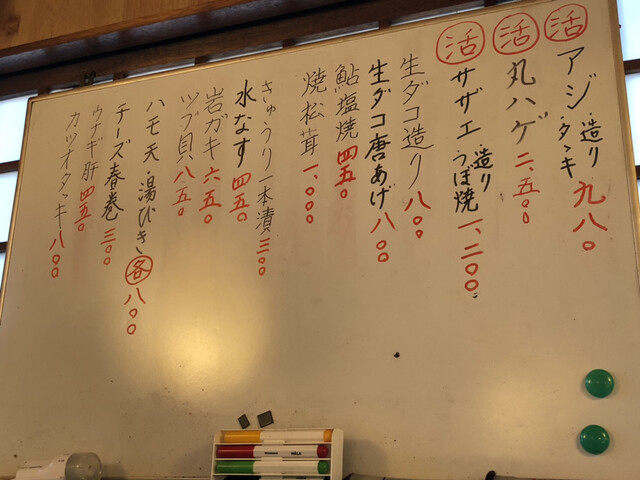 活 アジ・造り・タタキ 九八〇
活 丸ハゲ 二、五〇〇
活 サザエ・造り・つぼ焼 一、二〇〇
生ダコ造り 八〇〇
生ダコ唐あげ 八〇〇
鮎塩焼 四五〇
焼松茸 一、〇〇〇
きゅうり一本漬 三〇〇
水なす 四五〇
岩ガキ 六五〇
ツブ貝 八五〇
ハモ天・湯びき 各 八〇〇
チーズ春巻 三〇〇
ウナギ肝 四五〇
カツオタタキ 八〇〇